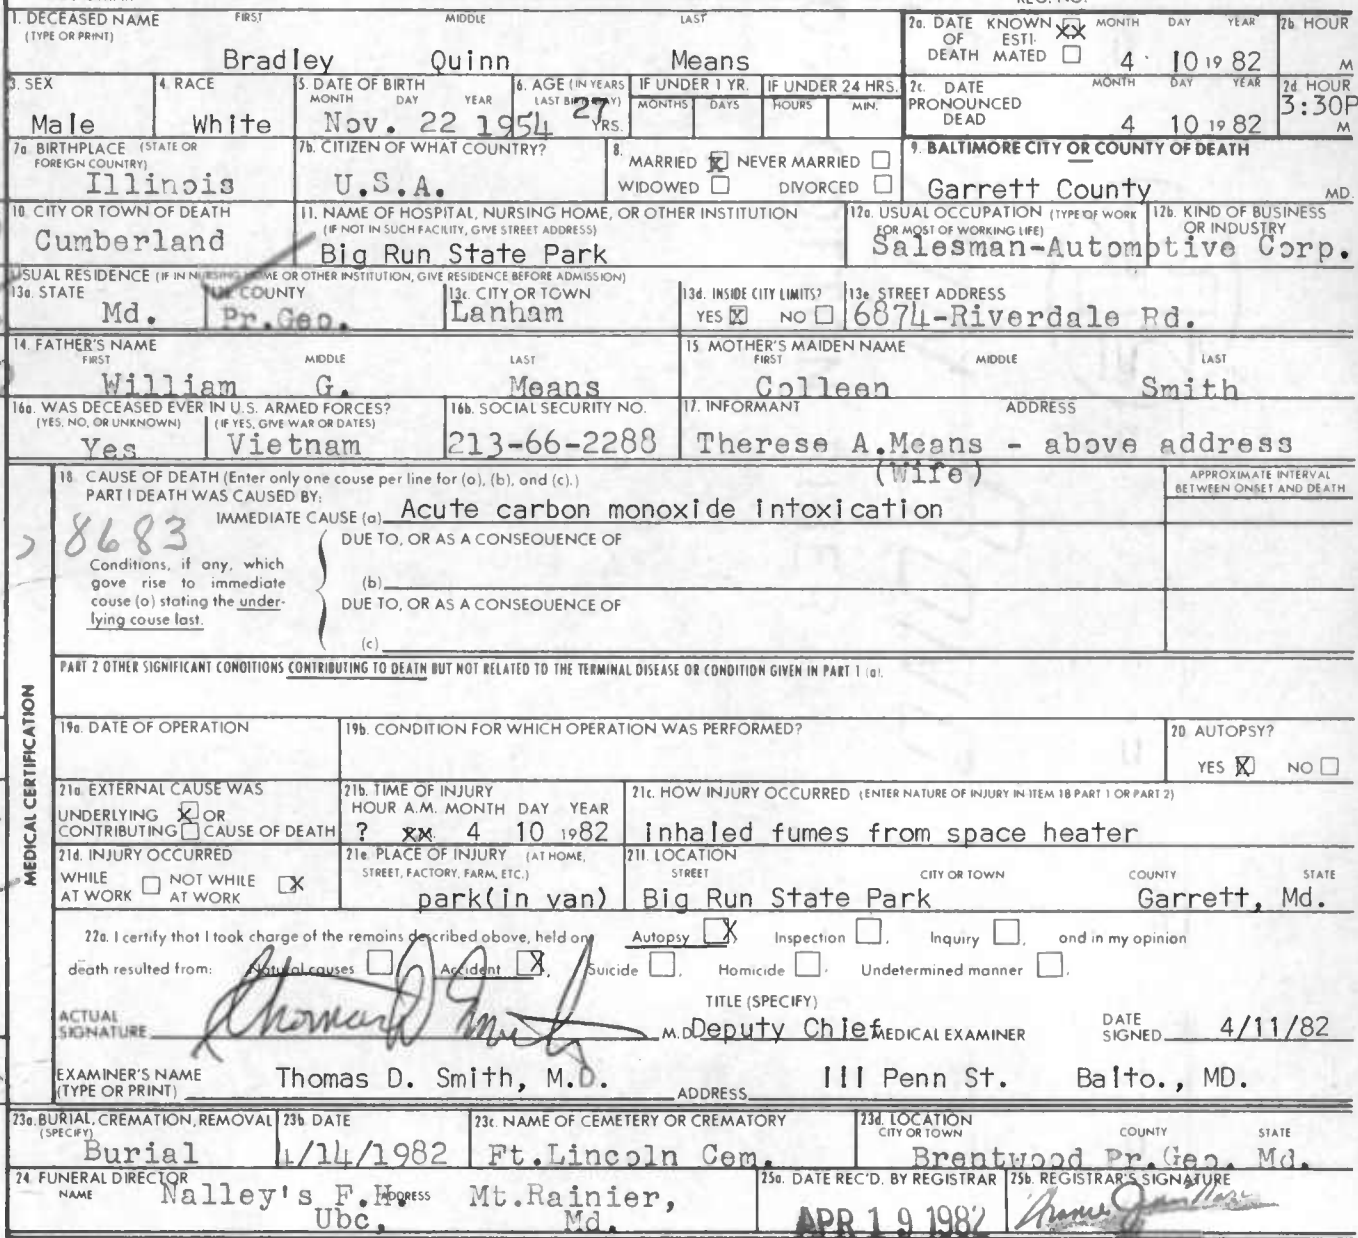 1. DECEASED NAME FIRST MIDDLE LAST
(TYPE OR PRINT)
Bradley Quinn Means
2a. DATE KNOWN XX MONTH DAY YEAR
OF ESTI-
DEATH MATED
4 10 19 82
2b. HOUR
M
3. SEX
Male
4. RACE
White
5. DATE OF BIRTH
MONTH DAY YEAR
Nov. 22 1954
6. AGE (IN YEARS
LAST BIRTHDAY)
27 YRS.
IF UNDER 1 YR.
MONTHS DAYS
IF UNDER 24 HRS.
HOURS MIN.
2c. DATE MONTH DAY YEAR
PRONOUNCED
DEAD
4 10 19 82
2d. HOUR
3:30P
M
7a. BIRTHPLACE (STATE OR
FOREIGN COUNTRY)
Illinois
7b. CITIZEN OF WHAT COUNTRY?
U.S.A.
8.
MARRIED X NEVER MARRIED
WIDOWED DIVORCED
9. BALTIMORE CITY OR COUNTY OF DEATH
Garrett County MD.
10. CITY OR TOWN OF DEATH
Cumberland
11. NAME OF HOSPITAL, NURSING HOME, OR OTHER INSTITUTION
(IF NOT IN SUCH FACILITY, GIVE STREET ADDRESS)
Big Run State Park
12a. USUAL OCCUPATION (TYPE OF WORK
FOR MOST OF WORKING LIFE)
12b. KIND OF BUSINESS
OR INDUSTRY
Salesman-Automotive Corp.
USUAL RESIDENCE (IF IN NURSING HOME OR OTHER INSTITUTION, GIVE RESIDENCE BEFORE ADMISSION)
13a. STATE
Md.
COUNTY
Pr.Geo.
13c. CITY OR TOWN
Lanham
13d. INSIDE CITY LIMITS?
YES X NO
13e. STREET ADDRESS
6874-Riverdale Rd.
14. FATHER'S NAME
FIRST MIDDLE LAST
William G. Means
15. MOTHER'S MAIDEN NAME
FIRST MIDDLE LAST
Colleen Smith
16a. WAS DECEASED EVER IN U.S. ARMED FORCES?
(YES, NO, OR UNKNOWN) (IF YES, GIVE WAR OR DATES)
Yes Vietnam
16b. SOCIAL SECURITY NO.
213-66-2288
17. INFORMANT ADDRESS
Therese A.Means - above address
(Wife)
18. CAUSE OF DEATH (Enter only one couse per line for (o), (b), ond (c).)
PART I DEATH WAS CAUSED BY:
APPROXIMATE INTERVAL
BETWEEN ONSET AND DEATH
IMMEDIATE CAUSE (a) Acute carbon monoxide intoxication
8683
DUE TO, OR AS A CONSEQUENCE OF
Conditions, if any, which
gove rise to immediate
couse (o) stating the under-
lying couse last.
(b)
DUE TO, OR AS A CONSEQUENCE OF
(c)
PART 2 OTHER SIGNIFICANT CONDITIONS CONTRIBUTING TO DEATH BUT NOT RELATED TO THE TERMINAL DISEASE OR CONDITION GIVEN IN PART 1 (a).
MEDICAL CERTIFICATION
19a. DATE OF OPERATION
19b. CONDITION FOR WHICH OPERATION WAS PERFORMED?
20 AUTOPSY?
YES X NO
21a. EXTERNAL CAUSE WAS
UNDERLYING X OR
CONTRIBUTING CAUSE OF DEATH
21b. TIME OF INJURY
HOUR A.M. MONTH DAY YEAR
? XX 4 10 1982
21c. HOW INJURY OCCURRED (ENTER NATURE OF INJURY IN ITEM 18 PART 1 OR PART 2)
inhaled fumes from space heater
21d. INJURY OCCURRED
WHILE NOT WHILE X
AT WORK AT WORK
21e. PLACE OF INJURY (AT HOME,
STREET, FACTORY, FARM, ETC.)
park(in van)
21f. LOCATION
STREET CITY OR TOWN COUNTY STATE
Big Run State Park Garrett, Md.
22a. I certify that I took charge of the remoins described above, held on Autopsy X, Inspection , Inquiry , ond in my opinion
death resulted from: Natural causes Accident X, Suicide , Homicide , Undetermined manner .
ACTUAL
SIGNATURE Thomas D Smith M.D.
TITLE (SPECIFY)
Deputy Chief MEDICAL EXAMINER
DATE
SIGNED 4/11/82
EXAMINER'S NAME
(TYPE OR PRINT) Thomas D. Smith, M.D.
ADDRESS 111 Penn St. Balto., MD.
23a. BURIAL, CREMATION, REMOVAL
(SPECIFY)
Burial
23b. DATE
4/14/1982
23c. NAME OF CEMETERY OR CREMATORY
Ft.Lincoln Cem.
23d. LOCATION
CITY OR TOWN COUNTY STATE
Brentwood Pr.Geo. Md.
24. FUNERAL DIRECTOR
NAME ADDRESS
Nalley's F.H. Mt.Rainier,
Md.
25a. DATE REC'D. BY REGISTRAR
APR 19 1982
25b. REGISTRAR'S SIGNATURE